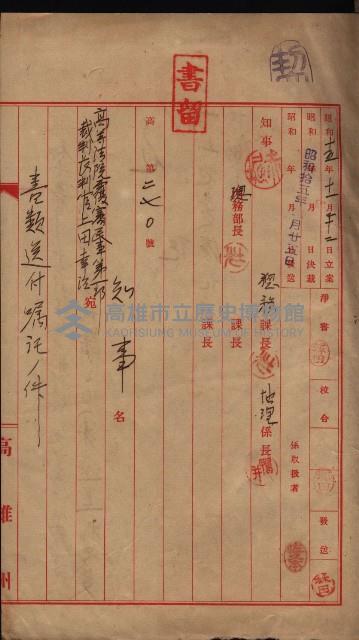 書留
昭和十五年十一月廿二日立案
昭和 年 月 日決裁
昭和拾五年 月廿五日
淨書
校合
發送
係取扱者
知事
總務部長
稅務課長
地理係長
課長
課長
高 第二七〇號
知事名
高等法院覆審部第一部
裁判長判官上田 宛
書類送付囑託ノ件
高雄州
高雄市立歷史博物館
KAOHSIUNG MUSEUM OF HISTORY